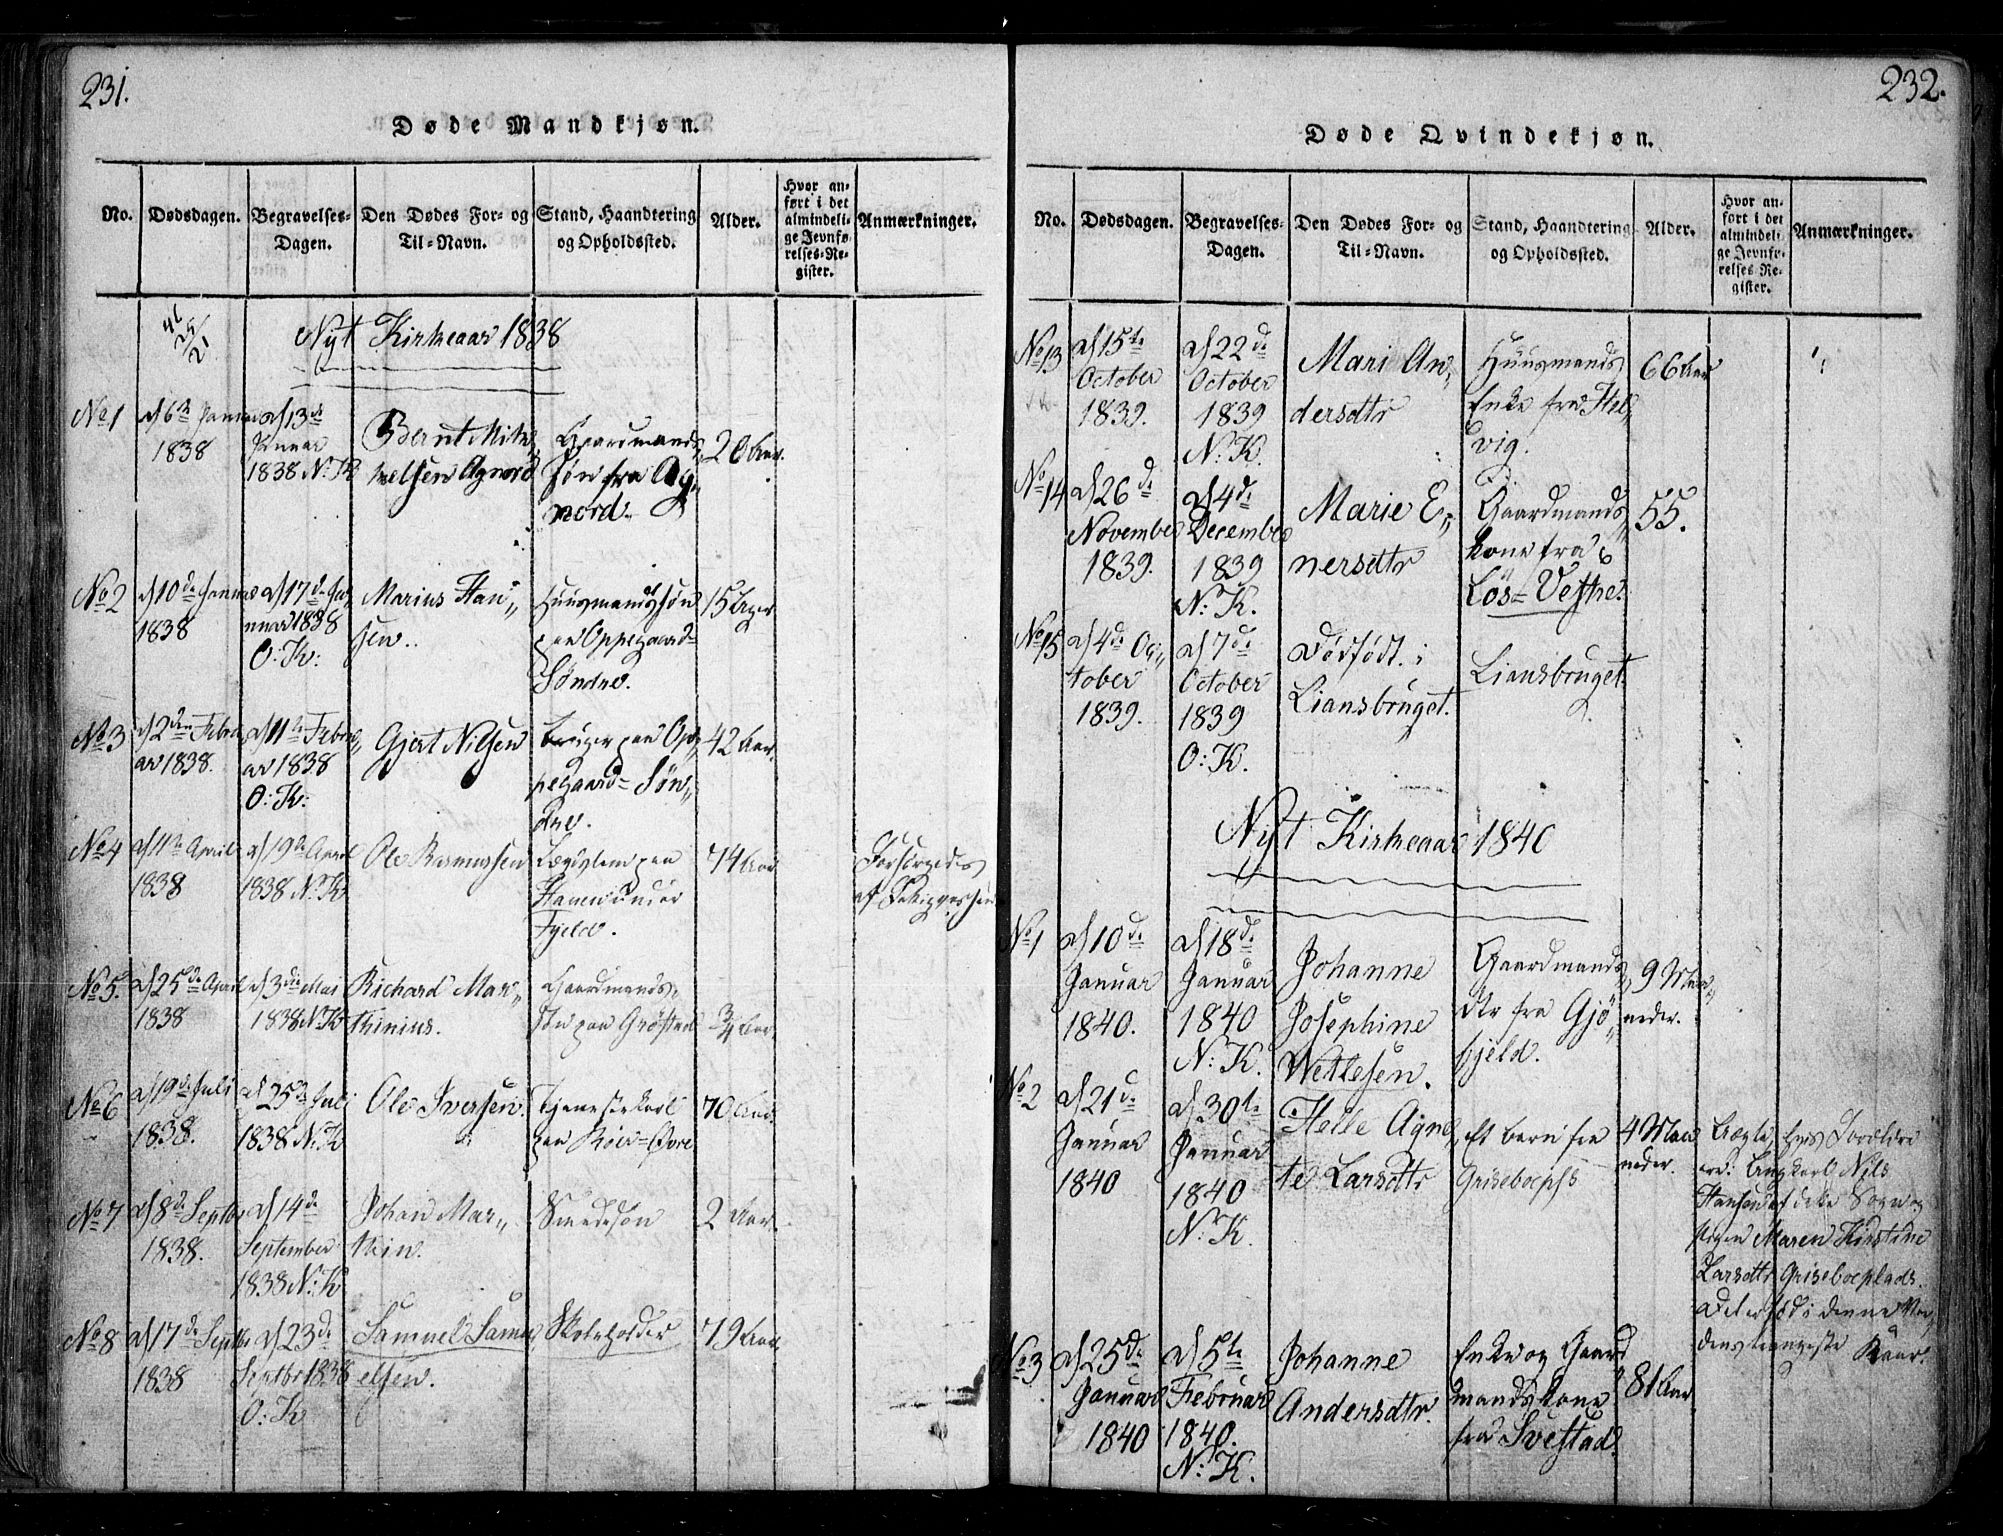 231.
Døde Mandkjøn.
No.
Dødsdagen.
Begravelses-
Dagen.
Den Dødes For- og
Til-Navn.
Stand, Haandtering
og Opholdssted.
Alder.
Hvor an-
ført i det
almindeli-
ge Jevnfø-
relses-Re-
gister.
Anmærkninger.
Nyt Kirkeaar 1838
No 1
d 6te Januar
1838
d 13de
Januar
1838 N. K
Bernt Mik-
kelsen Agnord
Gaardmands
søn fra Ag-
nord.
20 Aar.
No 2
d 10de Januar
1838
d 17de Ja-
nuar 1838
O: K:
Marius Han-
sen.
Huusmandssøn
paa Oppegaard-
Søndre.
15 Uger
No 3
d 2den Febru
ar 1838.
d 11te Febru-
ar 1838
O: K:
Gjert Nilsen
bruger paa Op-
pegaard-Søn-
dre.
42 Aar.
No 4
d 11te April
1838
d 19de April
1838 N. K
Ole Rasmussen
Lægdslem paa
under
Fjeld.
74 Aar
Forsørgedes
af
No 5.
d 25de April
1838
d 3die Mai
1838 N. K
Richard Mar-
thinius.
Gaardmands-
søn paa Grøstad
3/4 Aar.
No 6
d 19de Juli
1838.
d 25de Juli
1838 N. K
Ole Iversen.
Tjenestekarl
paa Røer-Øvre
70 Aar.
No 7
d 8de Septbr
1838.
d 14de
September
1838 N: K
Johan Mar-
thin.
Smedesøn
2 Aar.
No 8
d 17de Septbr
1838
d 23de
Septbr 1838
O: K
Samuel Samu-
elsen.
Skoleholder
79 Aar.
232.
Døde Qvindekjøn.
No.
Dødsdagen.
Begravelses-
Dagen.
Den Dødes For- og
Til-Navn.
Stand, Haandtering
og Opholdssted.
Alder.
Hvor an-
ført i det
almindeli-
ge Jevnfø-
relses Re-
gister.
Anmærkninger.
No 13
d 15te
October
1839.
d 22de
October
1839
N: K.
Mari An-
dersdtr
Huusmands
Enke fra Hel-
vig.
66 Aar
No 14
d 26de
November
1839.
d 4de
December
1839
N: K.
Marie E-
nersdtr
Gaardmands-
kone fra
Løs-Vestre.
55.
No 15
d 4de Oc-
tober
1839.
d 7de
October
1839
O: K.
Dødfødt i
Liansbruget.
Liansbruget.
Nyt Kirkeaar 1840
No 1
d 10de
Januar
1840.
d 18de
Januar
1840
N: K.
Johanne
Josephine
Wetlesen.
Gaardmands-
dtr fra Gjö-
fjeld.
9 Maa-
neder.
No 2
d 21de
Januar
1840
d 30te
Januar
1840
N: K.
Helle Agne-
te Larsdtr
Et barn fra
4 Maa
neder.
Uægte, hvis Forældre
ere: Ungkarl Nils
Hansen af dette Sogn og
Pigen Maren Kirstine
Larsdtr Griseboeplads.
Det er født i denne Ver-
dens trangeste Kaar.
No 3
d 25de
Januar
1840
d 5te
Februar
1840.
N: K.
Johanne
Andersdtr.
Enke og Gaard
mandskone
fra Svestad.
81 Aar